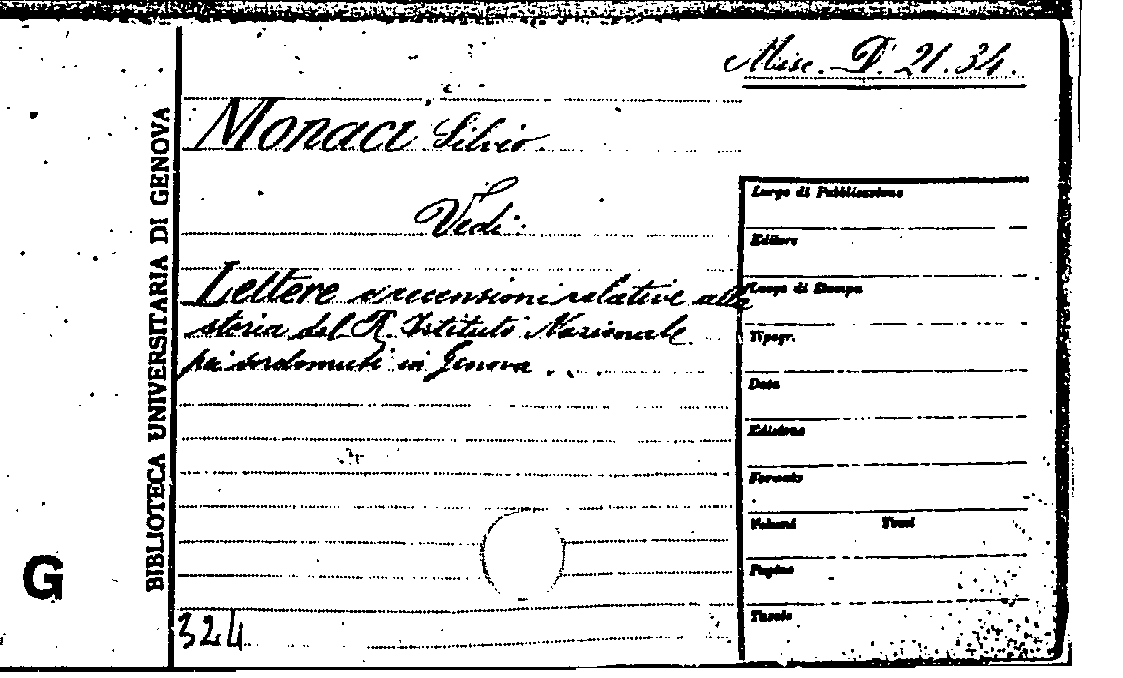 Misc. D. 21.34.
Monaci Silvio.
Vedi:
Lettere e recensioni relative alla
storia del R. Istituto Nazionale
pei sordomuti in Genova . . .
324
BIBLIOTECA UNIVERSITARIA DI GENOVA
G
Luogo di Pubblicazione
Editore
Luogo di Stampa
Tipogr.
Data
Edizione
Formato
Volumi Tomi
Pagine
Tavole